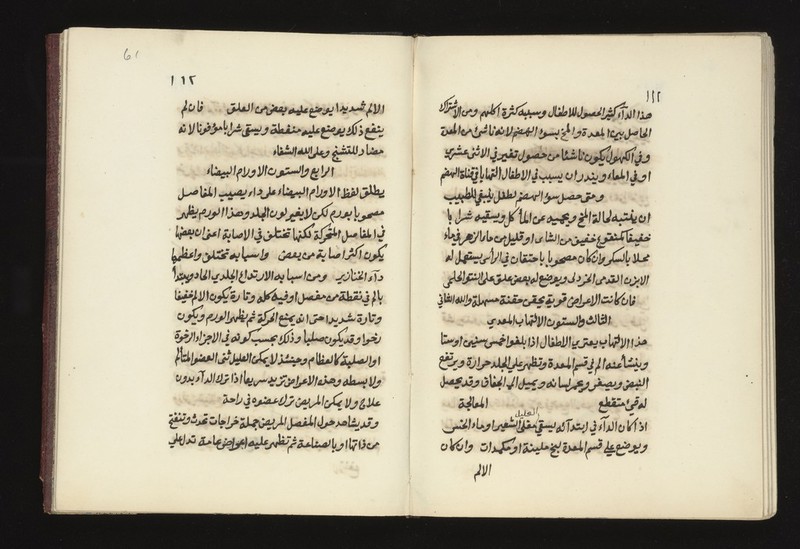 ١٢٢
هذا الدآء كثير الحصول للاطفال وسببه كثرة اكلهم ومن الاشتراك
الحاصل بين المعدة والمخ بسوء الهضم لانه ناشئ من المعدة
وفي الكهول يكون ناشئا من حصول تغير في الاثنى عشري
او في المعاء ويندر ان يسبب في الاطفال التهابا في قناة الهضم
ومتى حصل سوء الهضم لطفل ينبغي للطبيب
ان يلتبه لحالة المخ ويحميه عن المأكل ويسقيه شرابا
خفيفا كمنقوع خفيف من الشاى او قليل من ماء الزهر في ماء
محلا بالسكر وان كان مصحوبا باحتقان في الرأس يستعمل له
الابزن القدمي الخردلى ويوضع له بعض علق على النتو الحلمى
فان كانت الاعراض قوية يحقن حقنة مسهلة والله الشافي
الثالث والستون الالتهاب المعدي
هذا الالتهاب يعتري الاطفال اذا بلغوا خمس سنين او ستا
وينشأ عنه الم في قسم المعدة وتظهر على الجلد حرارة ويرتفع
النبض ويصفر ويحمر لسانه ويميل الي الجفاف وقد يحصل
له قئ متقطع المعالجة
اذا كان الدآء في ابتدآئه يسقي مغلى الشعير او ماء الخس
ويوضع على قسم المعدة لبخ ملينة او مكمدات وان كان
الالم
61
١٢٣
الالم شديدا يوضع عليه بعض من العلق فان لم
ينفع ذلك يوضع عليه منفطة ويسقى شرابا مؤفونا لانه
مضاد للتشنج وعلى الله الشفاء
الرابع والستون الاورام البيضاء
يطلق لفظ الاورام البيضاء على داء يصيب المفاصل
مصحوبا بورم لكن لا يغير لون الجلد وهذا الورم يظهر
في المفاصل المتحركة لكنها تختلف في الاصابة اعنى ان بعضها
يكون اكثر اصابة من بعض واسبابه تختلف واعظمها
دآء الخنازير ومن اسبابه الارتداع الجلدي الحاد ويبتدأ
بالم في نقطة من مفصل او فيه كله وتارة يكون الالم خفيفا
وتارة شديدا حتى انه يمنع الحركة ثم يظهر الورم ويكون
رخوا وقد يكون صلبا وذلك بحسب كونه في الاجزاء الرخوة
او الصلبة كالعظام وحينئذ لا يمكن العليل ثنى العضو المتالم
ولا بسطه وهذه الاعراض تزيد سريعا اذا ترك الدآء بدون
علاج ولا يمكن المريض ترك عضوه في راحة
وقد يشاهد حول المفصل المريض جملة خراجات تحدث وتنفتح
من ذاتها او بالصناعة ثم تظهر عليه اعراض عامة تدل على